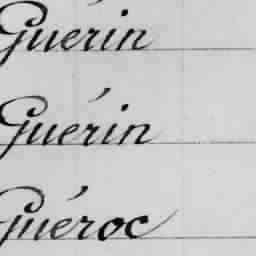 Guérin
Guérin
Guéroc